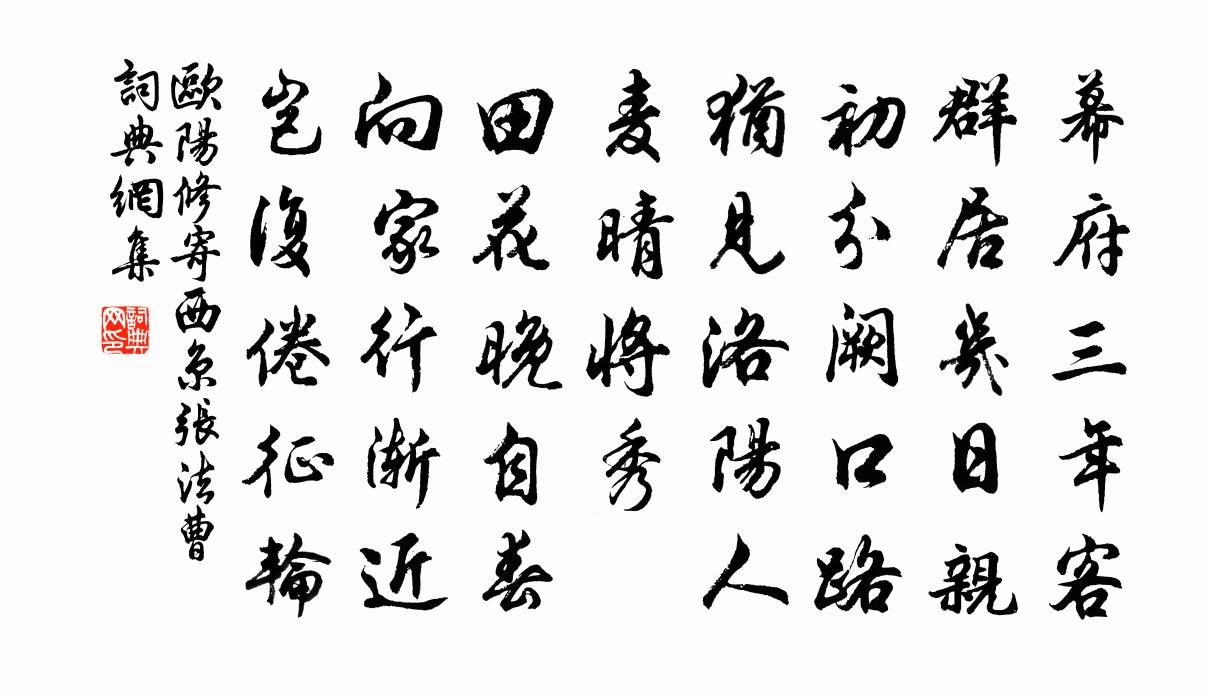 幕府三年客
群居幾日親
初分闕口路
猶見洛陽人
麦晴將秀
田花晚自春
向家行漸近
豈復倦征輪
歐陽修寄西京張法曹
詞典網集
詞典网印